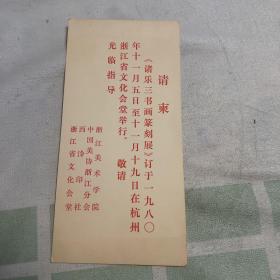 请柬
《诸乐三书画篆刻展》订于一九八〇
年十一月五日至十一月十九日在杭州
浙江省文化会堂举行。敬请
光临指导
浙江美术学院
中国美协浙江分会
西泠印社
浙江省文化会堂